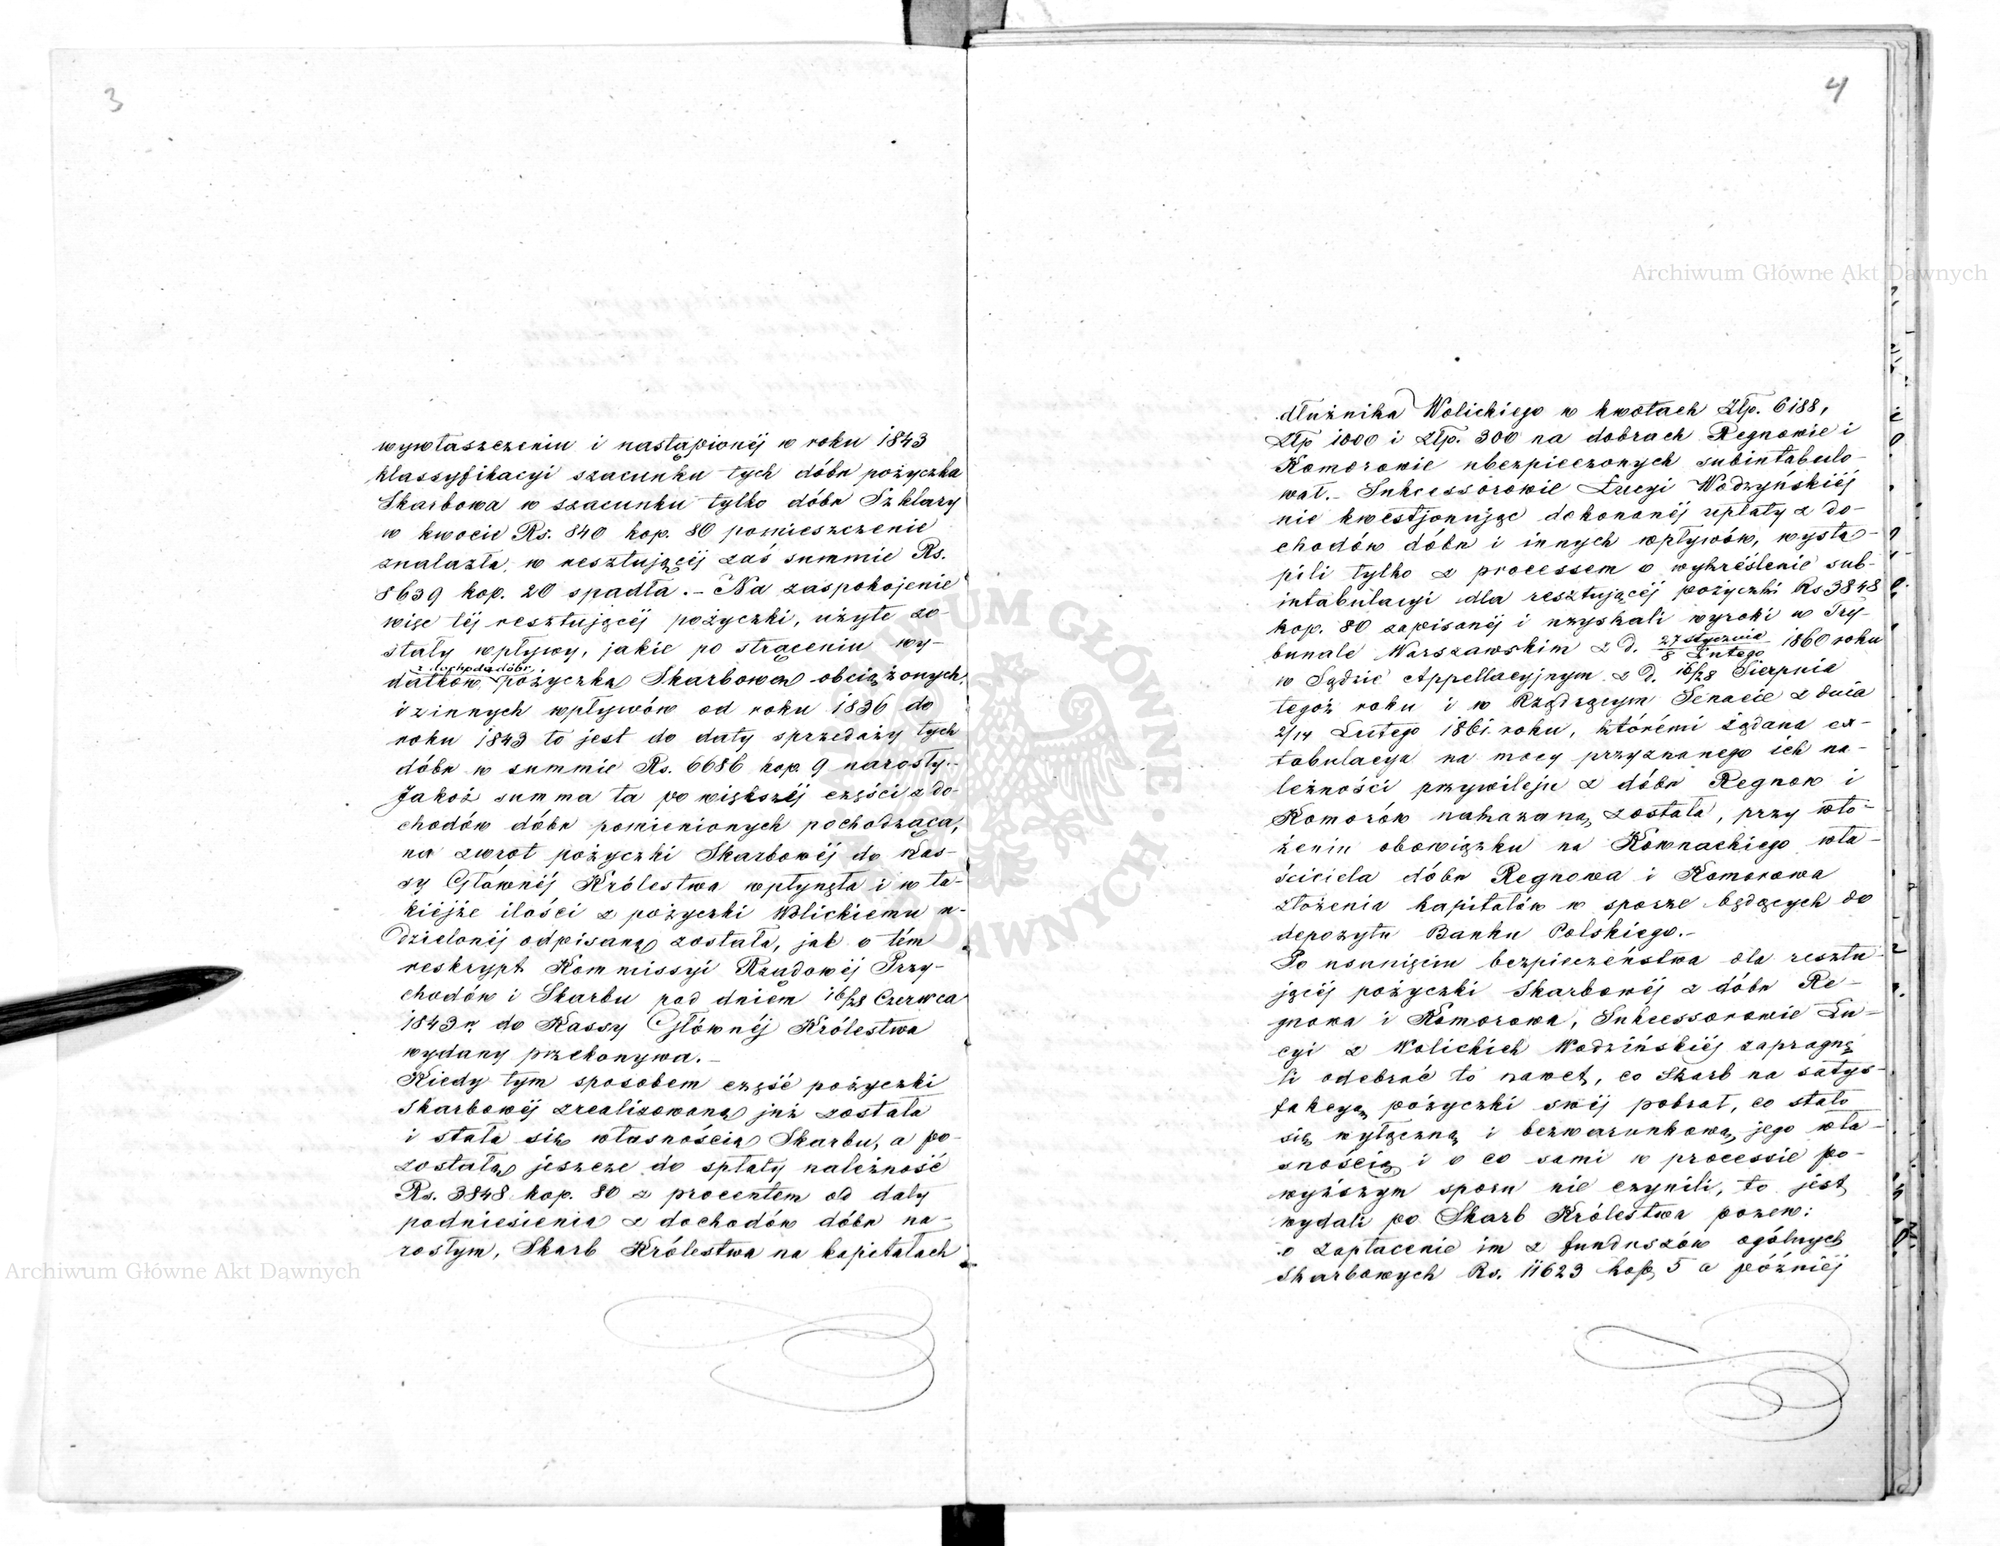 3
wywłaszczeniu i nastąpionéj w roku 1843
klassyfikacyi szacunku tych dóbr pożyczka
Skarbowa w szacunku tylko dóbr Szklary
w kwocie Rs. 840 kop. 80 pomieszczenie
znalazła, w resztującéj zaś summie Rs.
8639 kop. 20 spadła. – Na zaspokojenie
więc téj resztującéj pożyczki, użyte zo-
stały wpływy, jakie po strąceniu wy-
z dochodu dóbr
datków pożyczką Skarbową obciążonych,
i z innych wpływów od roku 1836 do
roku 1843 to jest do daty sprzedaży tych
dóbr w summie Rs. 6686 kop. 9 narosły.–
Jakoż summa ta po większéj części z do-
chodów dóbr pomienionych pochodząca,
na zwrot pożyczki Skarbowéj do Kas-
sy Głównéj Królestwa wpłynęła i w ta-
kiéjże ilości z pożyczki Wolickiemu u-
dzielonéj odpisaną została, jak o tém
reskrypt Kommissyi Rządowéj Przy-
chodów i Skarbu pod dniem 16/28 Czerwca
1843 r. do Kassy Głównéj Królestwa
wydany przekonywa. –
Kiedy tym sposobem część pożyczki
Skarbowéj zrealizowaną już została
i stała się własnością Skarbu, a po-
została jeszcze do spłaty należność
Rs. 3848 kop. 80 z procentem od daty
podniesienia z dochodów dóbr na-
rosłym, Skarb Królestwa na kapitałach
4
dłużnika Wolickiego w kwotach Złp. 6188,
Złp 1000 i Złp. 300 na dobrach Regnowie i
Komorowie ubezpieczonych subintabulo-
wał. – Sukcessorowie Łucyi Wodzyńskiéj
nie kwestjonując dokonanéj upłaty z do-
chodów dóbr i innych wpływów, wystą-
pili tylko z processem o wykréślenie sub-
intabulacyi dla resztującéj pożyczki Rs 3848
kop. 80 zapisanéj i uzyskali wyroki w Try-
bunale Warszawskim z d. 27 stycznia/8 Lutego 1860 roku
w Sądzie Appellacyjnym z d. 16/28 Sierpnia
tegoż roku i w Rządzącym Senacie z dnia
2/14 Lutego 1861 roku, którémi żądana ex-
tabulacya na mocy przyznanego ich na-
leżności przywileju z dóbr Regnow i
Komorów nakazaną została, przy wło-
żeniu obowiązku na Kownackiego wła-
ściciela dóbr Regnowa i Komorowa
złożenia kapitałów w sporze będących do
depozytu Banku Polskiego. –
Po usunięciu bezpieczeństwa dla resztu-
jącéj pożyczki Skarbowéj z dóbr Re-
gnowa i Komorowa, Sukcessorowie Łu-
cyi z Wolickich Wodzińskiéj zapragnę-
li odebrać to nawet, co Skarb na satys-
fakcyą pożyczki swéj pobrał, co stało
się wyłączną i bezwarunkową jego wła-
snością i o co sami w processie po-
wyższym sporu nie czynili, to jest
wydali po Skarb Królestwa pozew:
o zapłacenie im z funduszów ogólnych
Skarbowych Rs. 11623 kop. 5 a późniéj
Archiwum Główne Akt Dawnych
Archiwum Główne Akt Dawnych